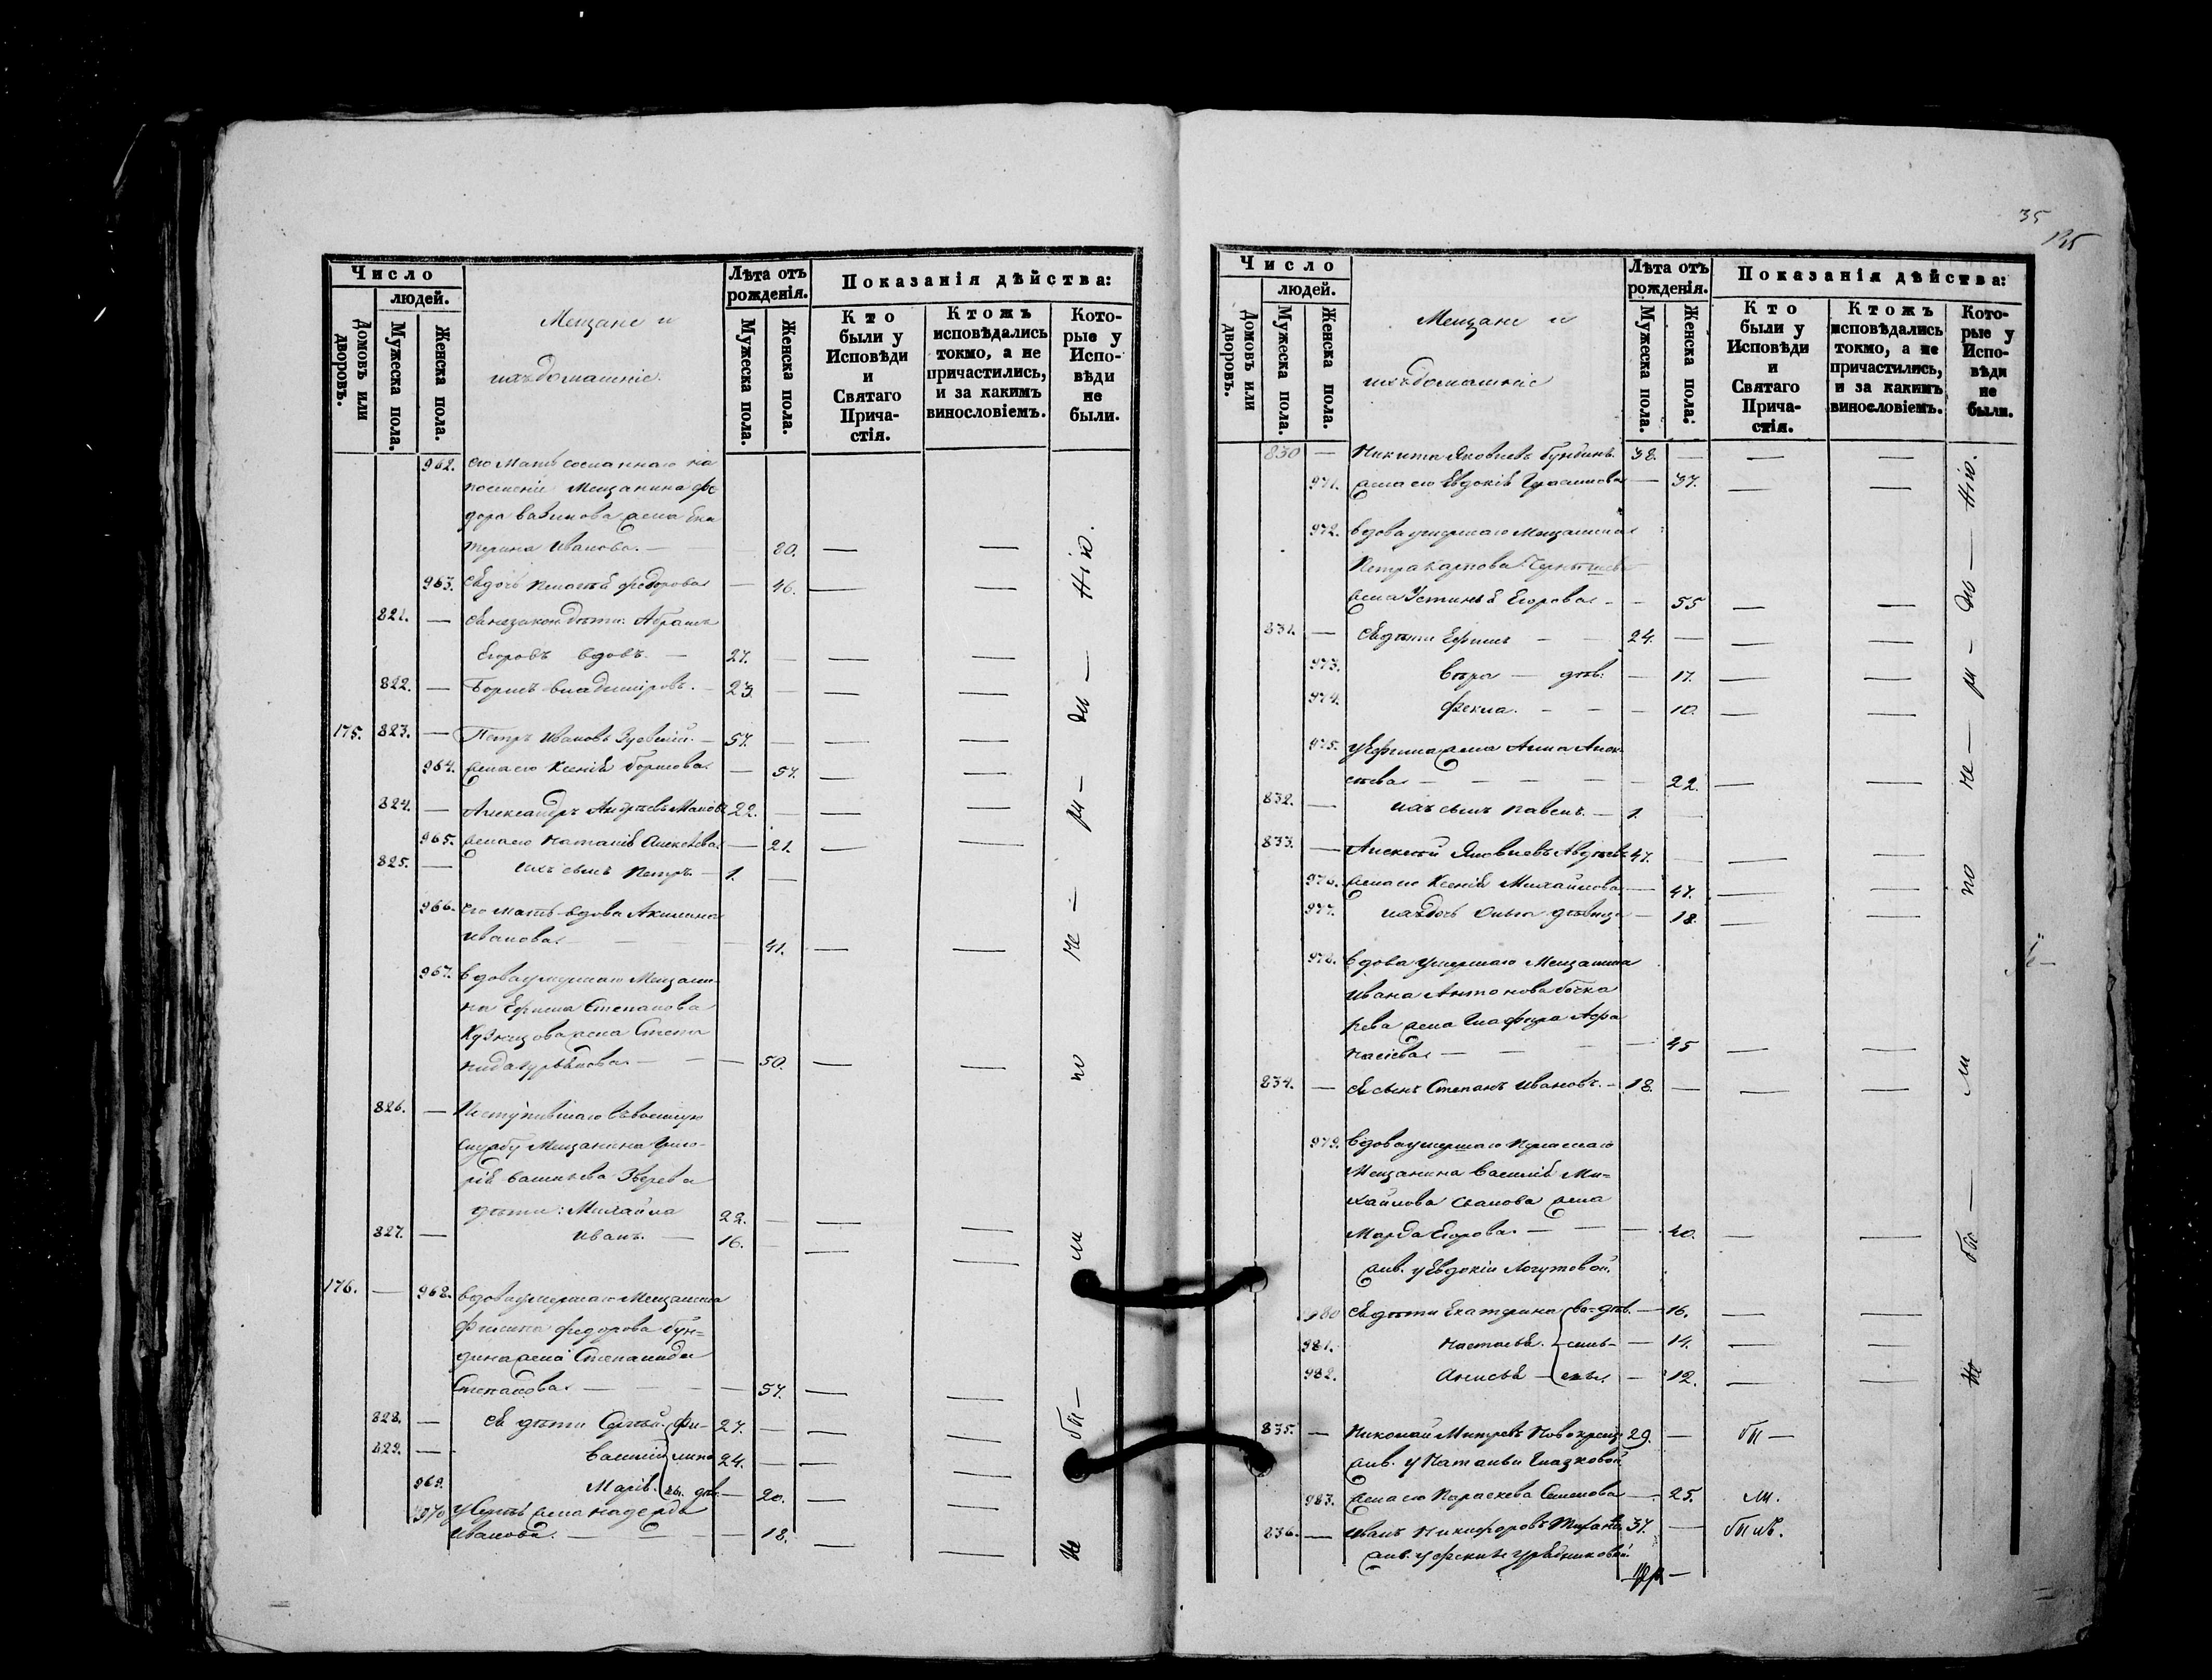 35
125
Число
людей.
Домовъ или дворовъ.
Мужеска пола.
Женска пола.
Мещане и
ихъ домашніе.
Лѣта отъ рожденія.
Мужеска пола.
Женска пола.
Показанія дѣйства:
Кто были у Исповѣди и Святаго Прича-стія.
Ктожъ исповѣдались токмо, а не причастились, и за какимъ винословіемъ.
Кото-рые у Испо-вѣди не были.
962. Его мать сосланнаго на
поселеніе Мещанина Фе
дора жена Ека
терина Иванова. — 80. — —
963. Ея дочь Пелагѣя Федорова — 46. — —
821. — Ея незакон. дѣти: Абрамъ
Егоровъ вдовъ. — 27. — — —
822. — Борисъ Владиміровъ. — 23 — — —
175. 823. — Петръ Ивановъ — 57. — — —
964. жена его Ксенія Борисова — 57. — —
824. — Александръ Андреевъ 22. — — —
965. жена его Наталія Алексѣева — 21. — —
825. — ихъ сынъ Петръ — 1. —
966. Его мать вдова Акилина
Иванова — 41. — —
967. вдова умершаго Мещани-
на Ефима Степанова
Кузнецова жена Степа
нида — 50. — —
826. — Поступившаго въ военную
службу Мещанина Григо-
рія Васильева Зверева
дѣти: Михайла 22. — — —
827. — Иванъ. — 16. — — —
176. — 968. вдова умершаго Мещанина
Филипа Федорова Бун=
дина жена Степанида
Степанова — 57. — —
828. — Ея дѣти Сергѣй. Фи- 27. — — —
829. — Василій липо 24. — — —
969. Марія. вы. дѣв. — 20. — —
970 у Сергѣя жена Надежда
Иванова. — 18. — —
Число
людей.
Домовъ или дворовъ.
Мужеска пола.
Женска пола.
Мещане и
ихъ домашніе
Лѣта отъ рожденія.
Мужеска пола.
Женска пола.
Показанія дѣйства:
Кто были у Исповѣди и Святаго Прича-стія.
Ктожъ исповѣдались токмо, а не причастились, и за какимъ винословіемъ.
Кото-рые у Испо-вѣди не были.
830 — Никита Яковлевъ Бундинъ. 38. — — —
971. жена его Евдокія Герасимова — 37. — —
972. вдова умершаго Мещанина
Петра Карпова
жена Устинья Егорова — 55 — —
831. — Ея дѣти Ефимъ — 24. — — —
973. Вѣра — дѣв: — 17. — —
974. Фекла. — 10. — —
975. у Ефима жена Анна Алек
сѣева — 22. — —
832. — ихъ сынъ Павелъ. — 1. —
833. — Алексѣй Яковлевъ Авдѣевъ 47. — — —
976. жена его Ксенія Михайлова — 47. — —
977. ихъ дочь Ольга дѣвица — 18. — —
978. вдова умершаго Мещанина
Ивана Антонова Бочка
рева жена Глафира Афа
насіева — 45 — —
834. — Ея сынъ Степанъ Ивановъ. — 18. — — —
979. вдова умершаго
Мещанина Василія Ми=
хайлова жена
Марфа Егорова — 40. — —
жив. у Евдокіи Логутовой.
980 Ея дѣти Екатерина Ва= дѣв. — 16. — —
981. Настасья. силь- — 14. — —
982. Анисья — евы. — 12. — —
835. — Николай Митревъ Новокрещ 29. — бы —
жив. у Натальи Глазковой
983. жена его Параскева Семенова — 25. ли.
836. — Иванъ Никифоровъ 37. — были.